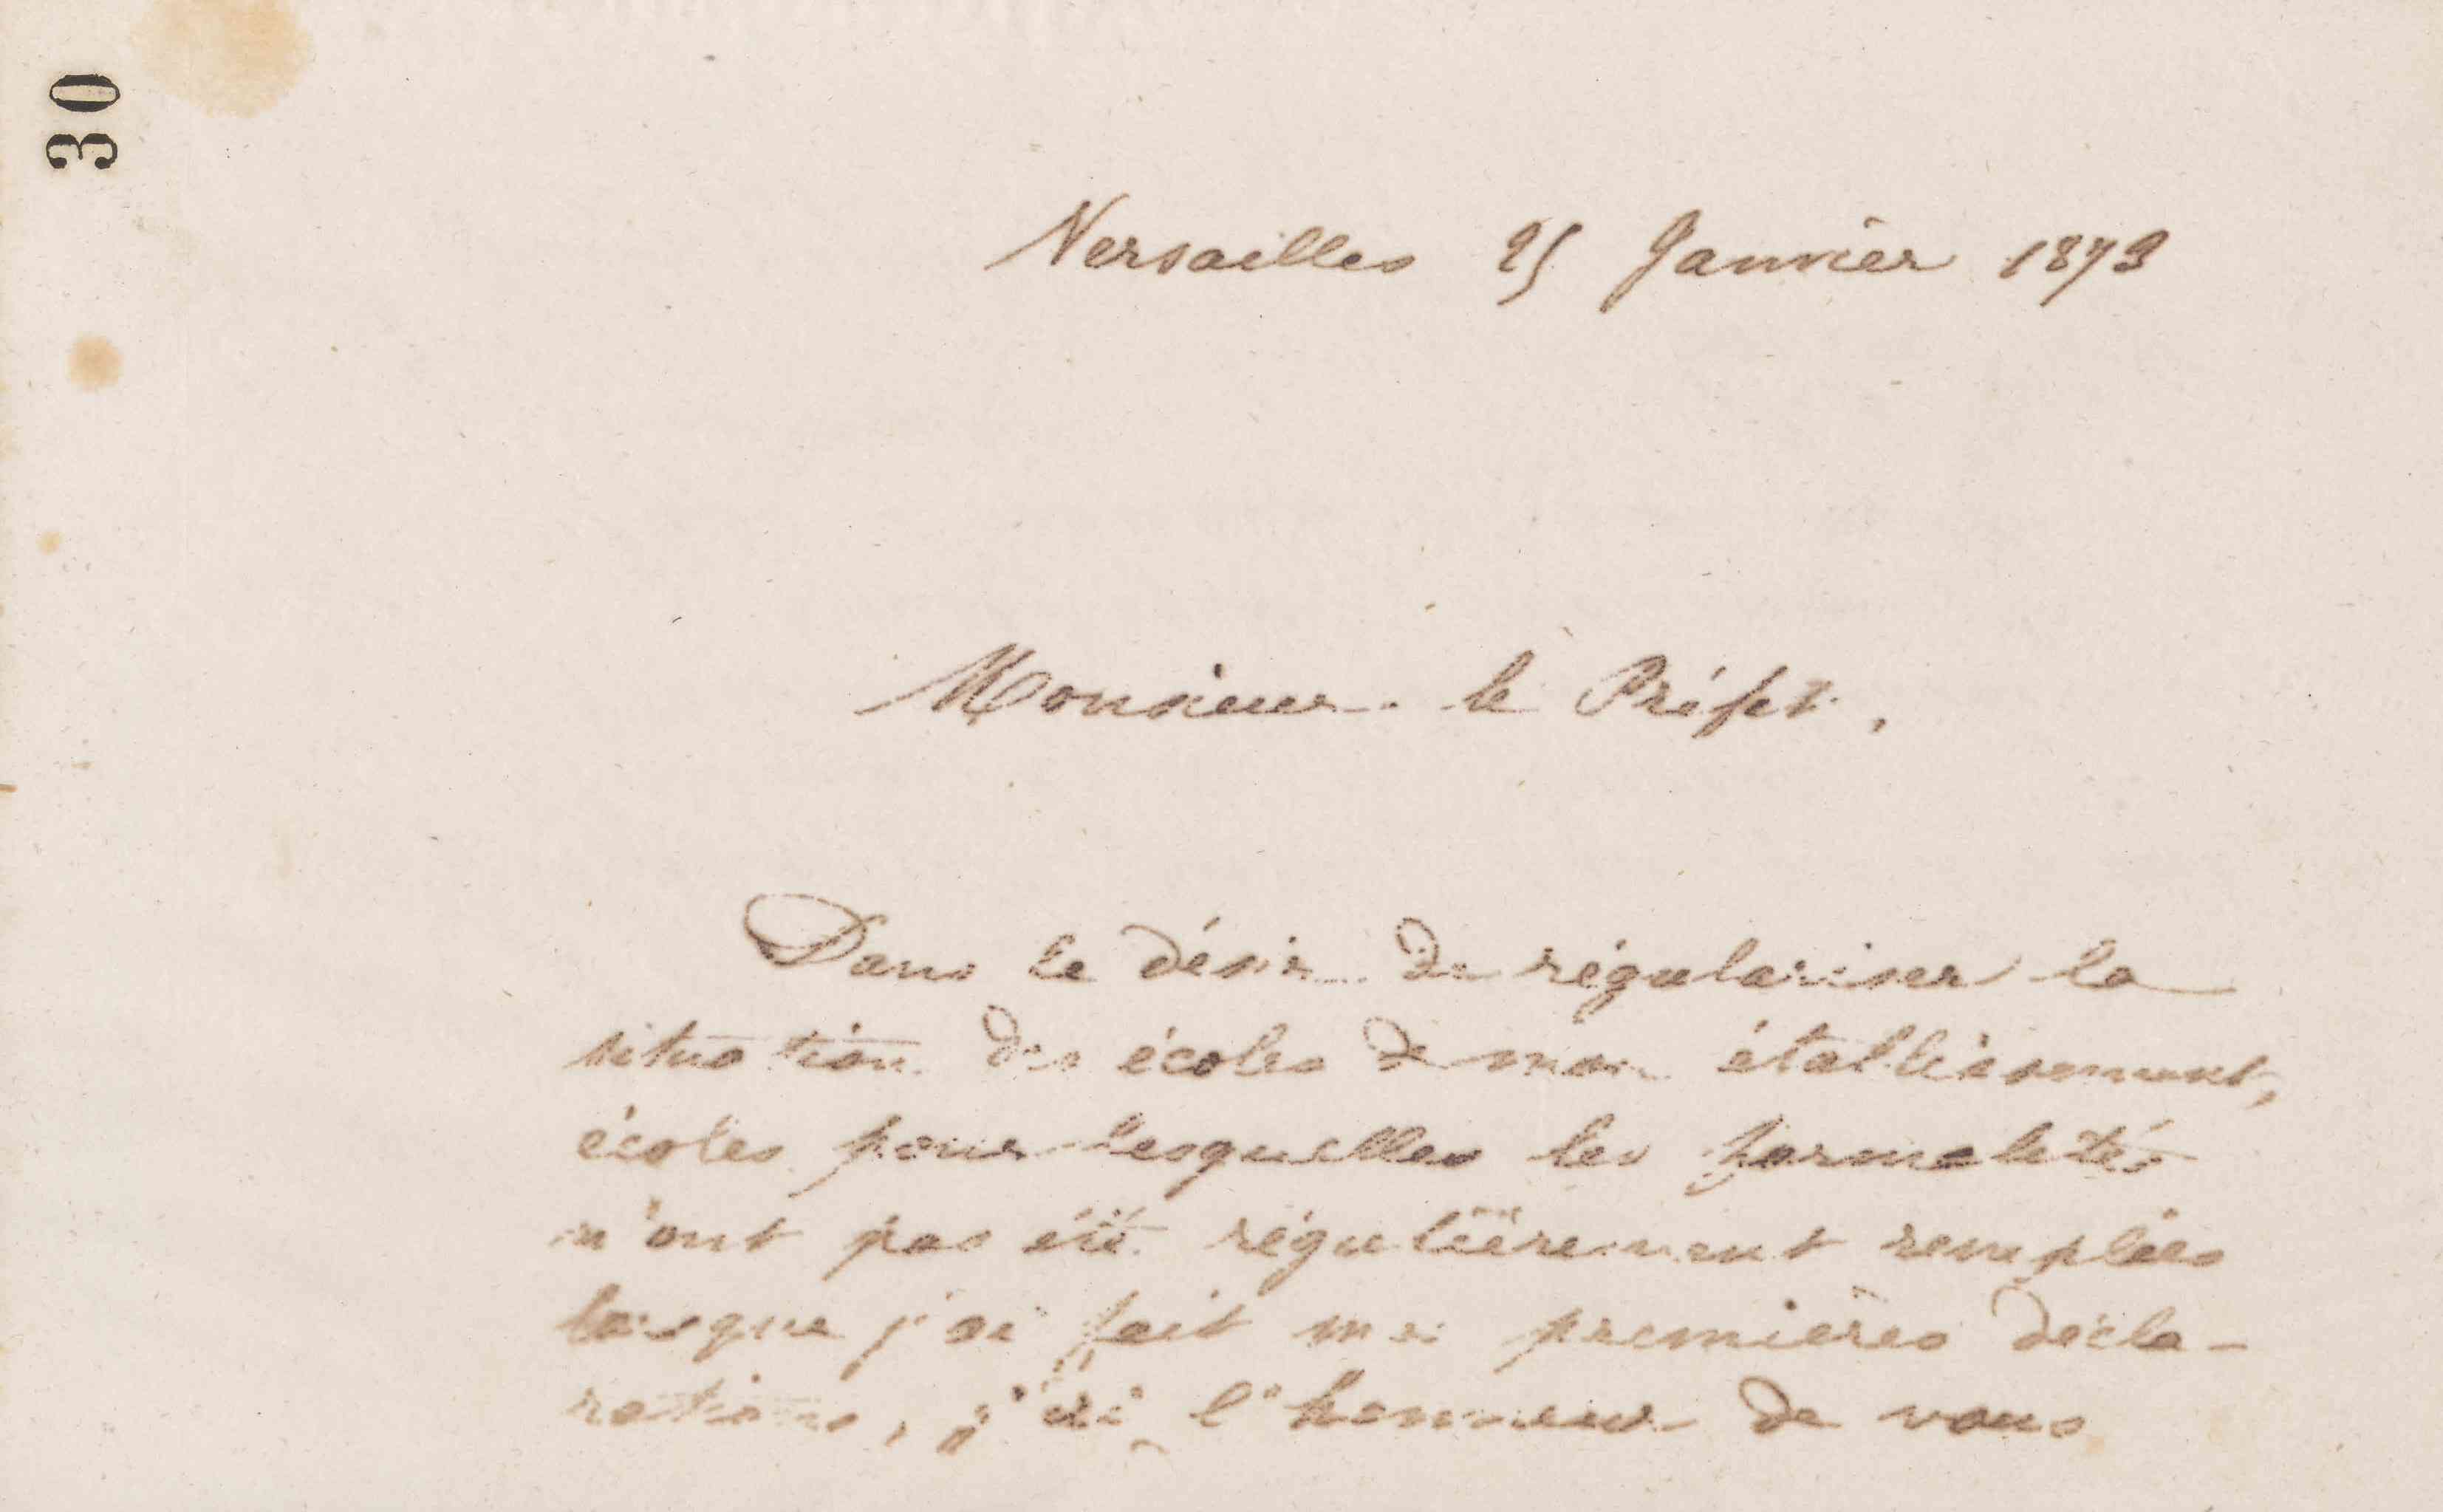 30
Versailles 25 Janvier 1873
Monsieur le Préfet,
Dans le désir de régulariser la
situation des écoles de mon établissement,
écoles pour lesquelles les formalités
n'ont pas été régulièrement remplies
lorsque j'ai fait mes premières décla-
rations, j'ai l'honneur de vous